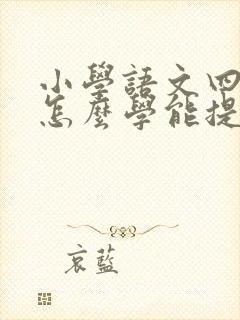 小學語文四
怎麼學能提
哀藍